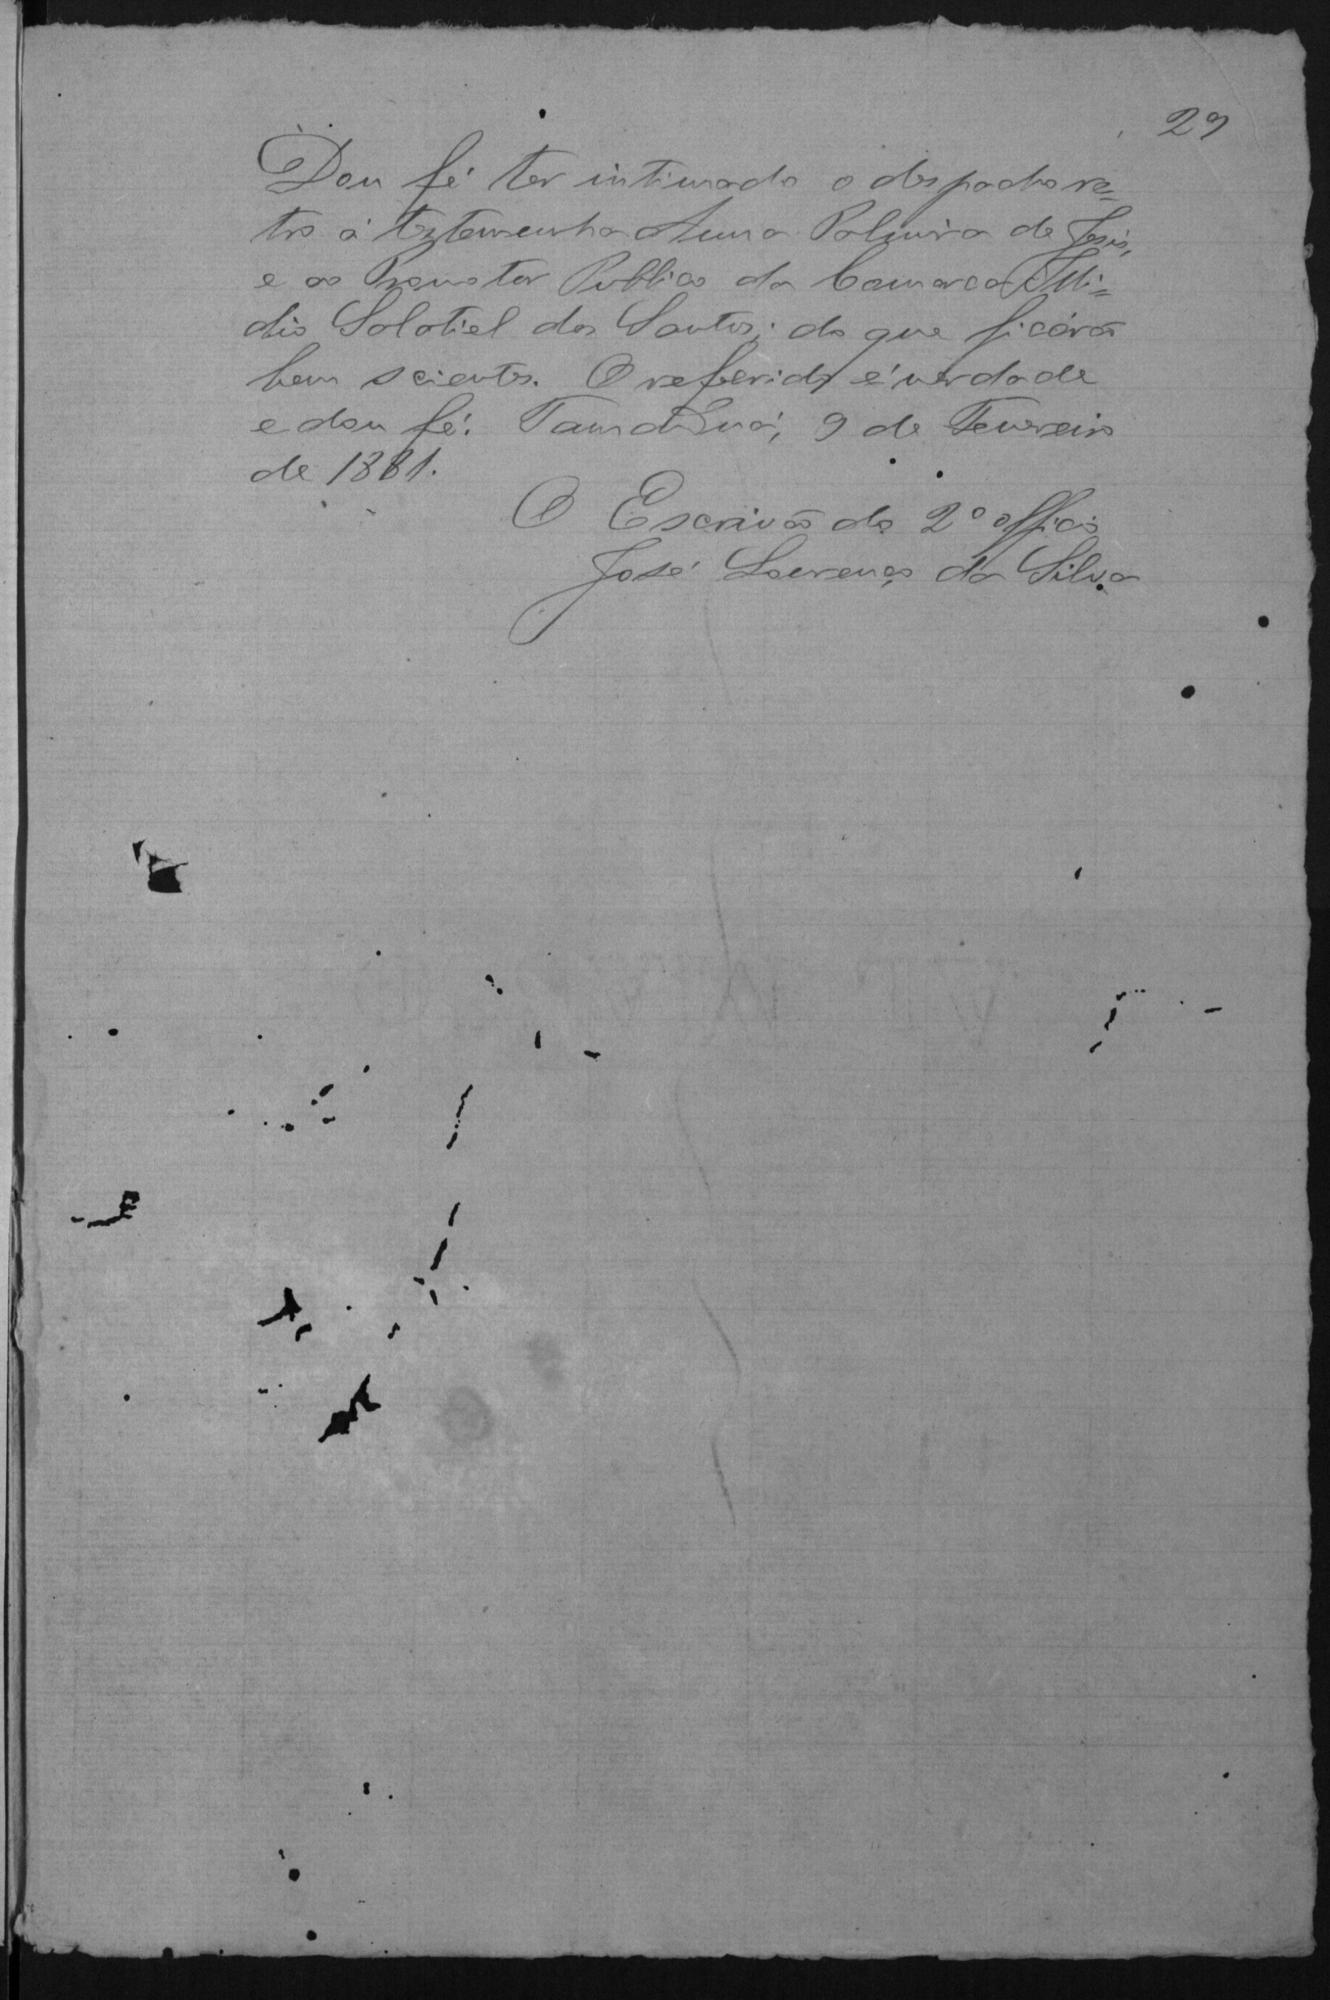 29
Dou fé ter intimado o despacho re=
tro á testemunha Anna Palmira de Jesus,
e ao Promotor Publico da Comarca Elli=
dio Salatiel dos Santos; do que ficárão
bem scientes. O referido é verdade
e dou fé. Tamanduá, 9 de Fevereiro
de 1881.
O Escrivão do 2º officio
José Lourenço da Silva